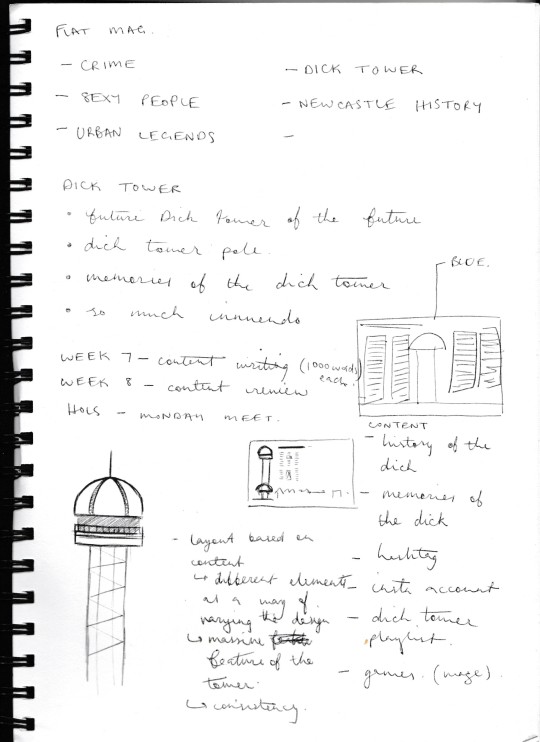 FLAT MAG.
- CRIME
- SEXY PEOPLE
- URBAN LEGENDS
- DICK TOWER
- NEWCASTLE HISTORY
-
DICK TOWER
• future Dick tower of the future
• dick tower pole.
• memories of the dick tower
• so much innuendo
BLUE.
WEEK 7 - content writing (1000 words each.
WEEK 8 - content review
HOLS - MONDAY MEET.
CONTENT
- history of the
dick
- memories of
the dick
- hashtag
- insta account
- dick tower
playlist.
- games. (maze).
- Layout based on
content
↳ different elements
as a way of
varying the design
↳ massive
feature of the
tower.
↳ consistency.